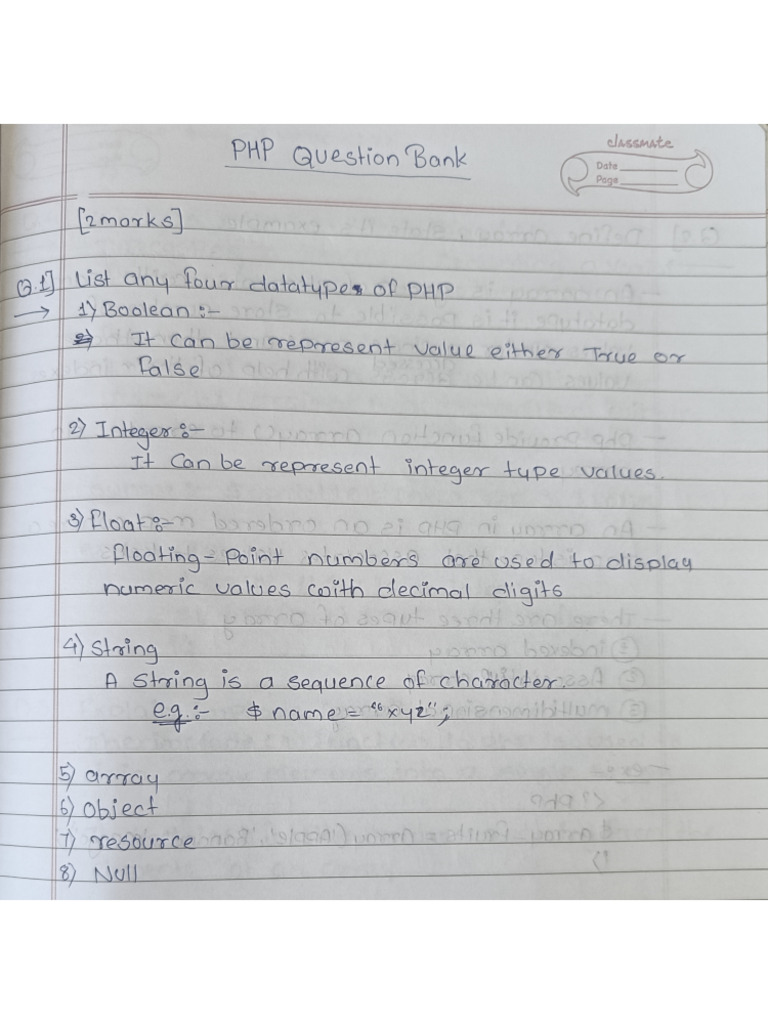 PHP Question Bank
classmate
Date
Page
[2marks]
Q.1] List any four datatypes of PHP
→ 1) Boolean :-
It can be represent value either True or
False
2) Integer :-
It can be represent integer type values.
3) float :-
floating-point numbers are used to display
numeric values with decimal digits
4) String
A String is a sequence of character.
e.g. :- $ name = "xyz";
5) array
6) object
7) resource
8) Null